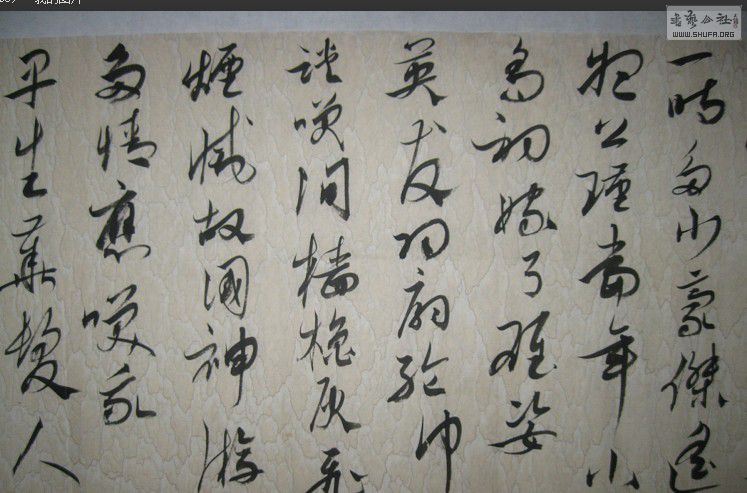 我的图片
書藝公社
WWW.SHUFA.ORG
一時多少豪傑遥
想公瑾當年小
喬初嫁了雄姿
英发羽扇纶巾
談笑間檣櫓灰飛
煙滅故國神游
多情應笑我
早生華髮人